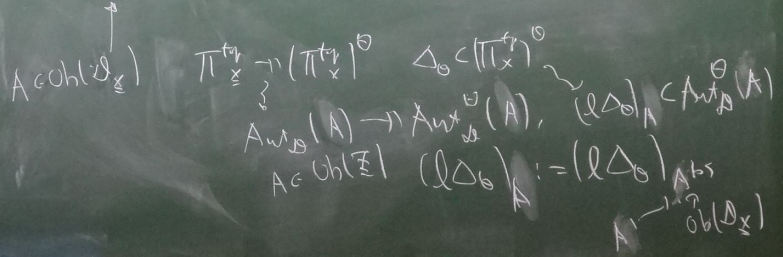 A ∈ Ob(𝒟_X̲) Π^{tp}_X̲ ↠ (Π^{tp}_X̲)^Θ Δ_Θ ⊂ (Π^{tp}_X)^Θ
Aut_𝒟(A) ↠ Aut^Θ_𝒟(A), (lΔ_Θ)_A ⊂ Aut^Θ_𝒟(A)
A ∈ Ob( ) (lΔ_Θ)_A := (lΔ_Θ)_{A^{bs}}
A Ob(𝒟_X̲)